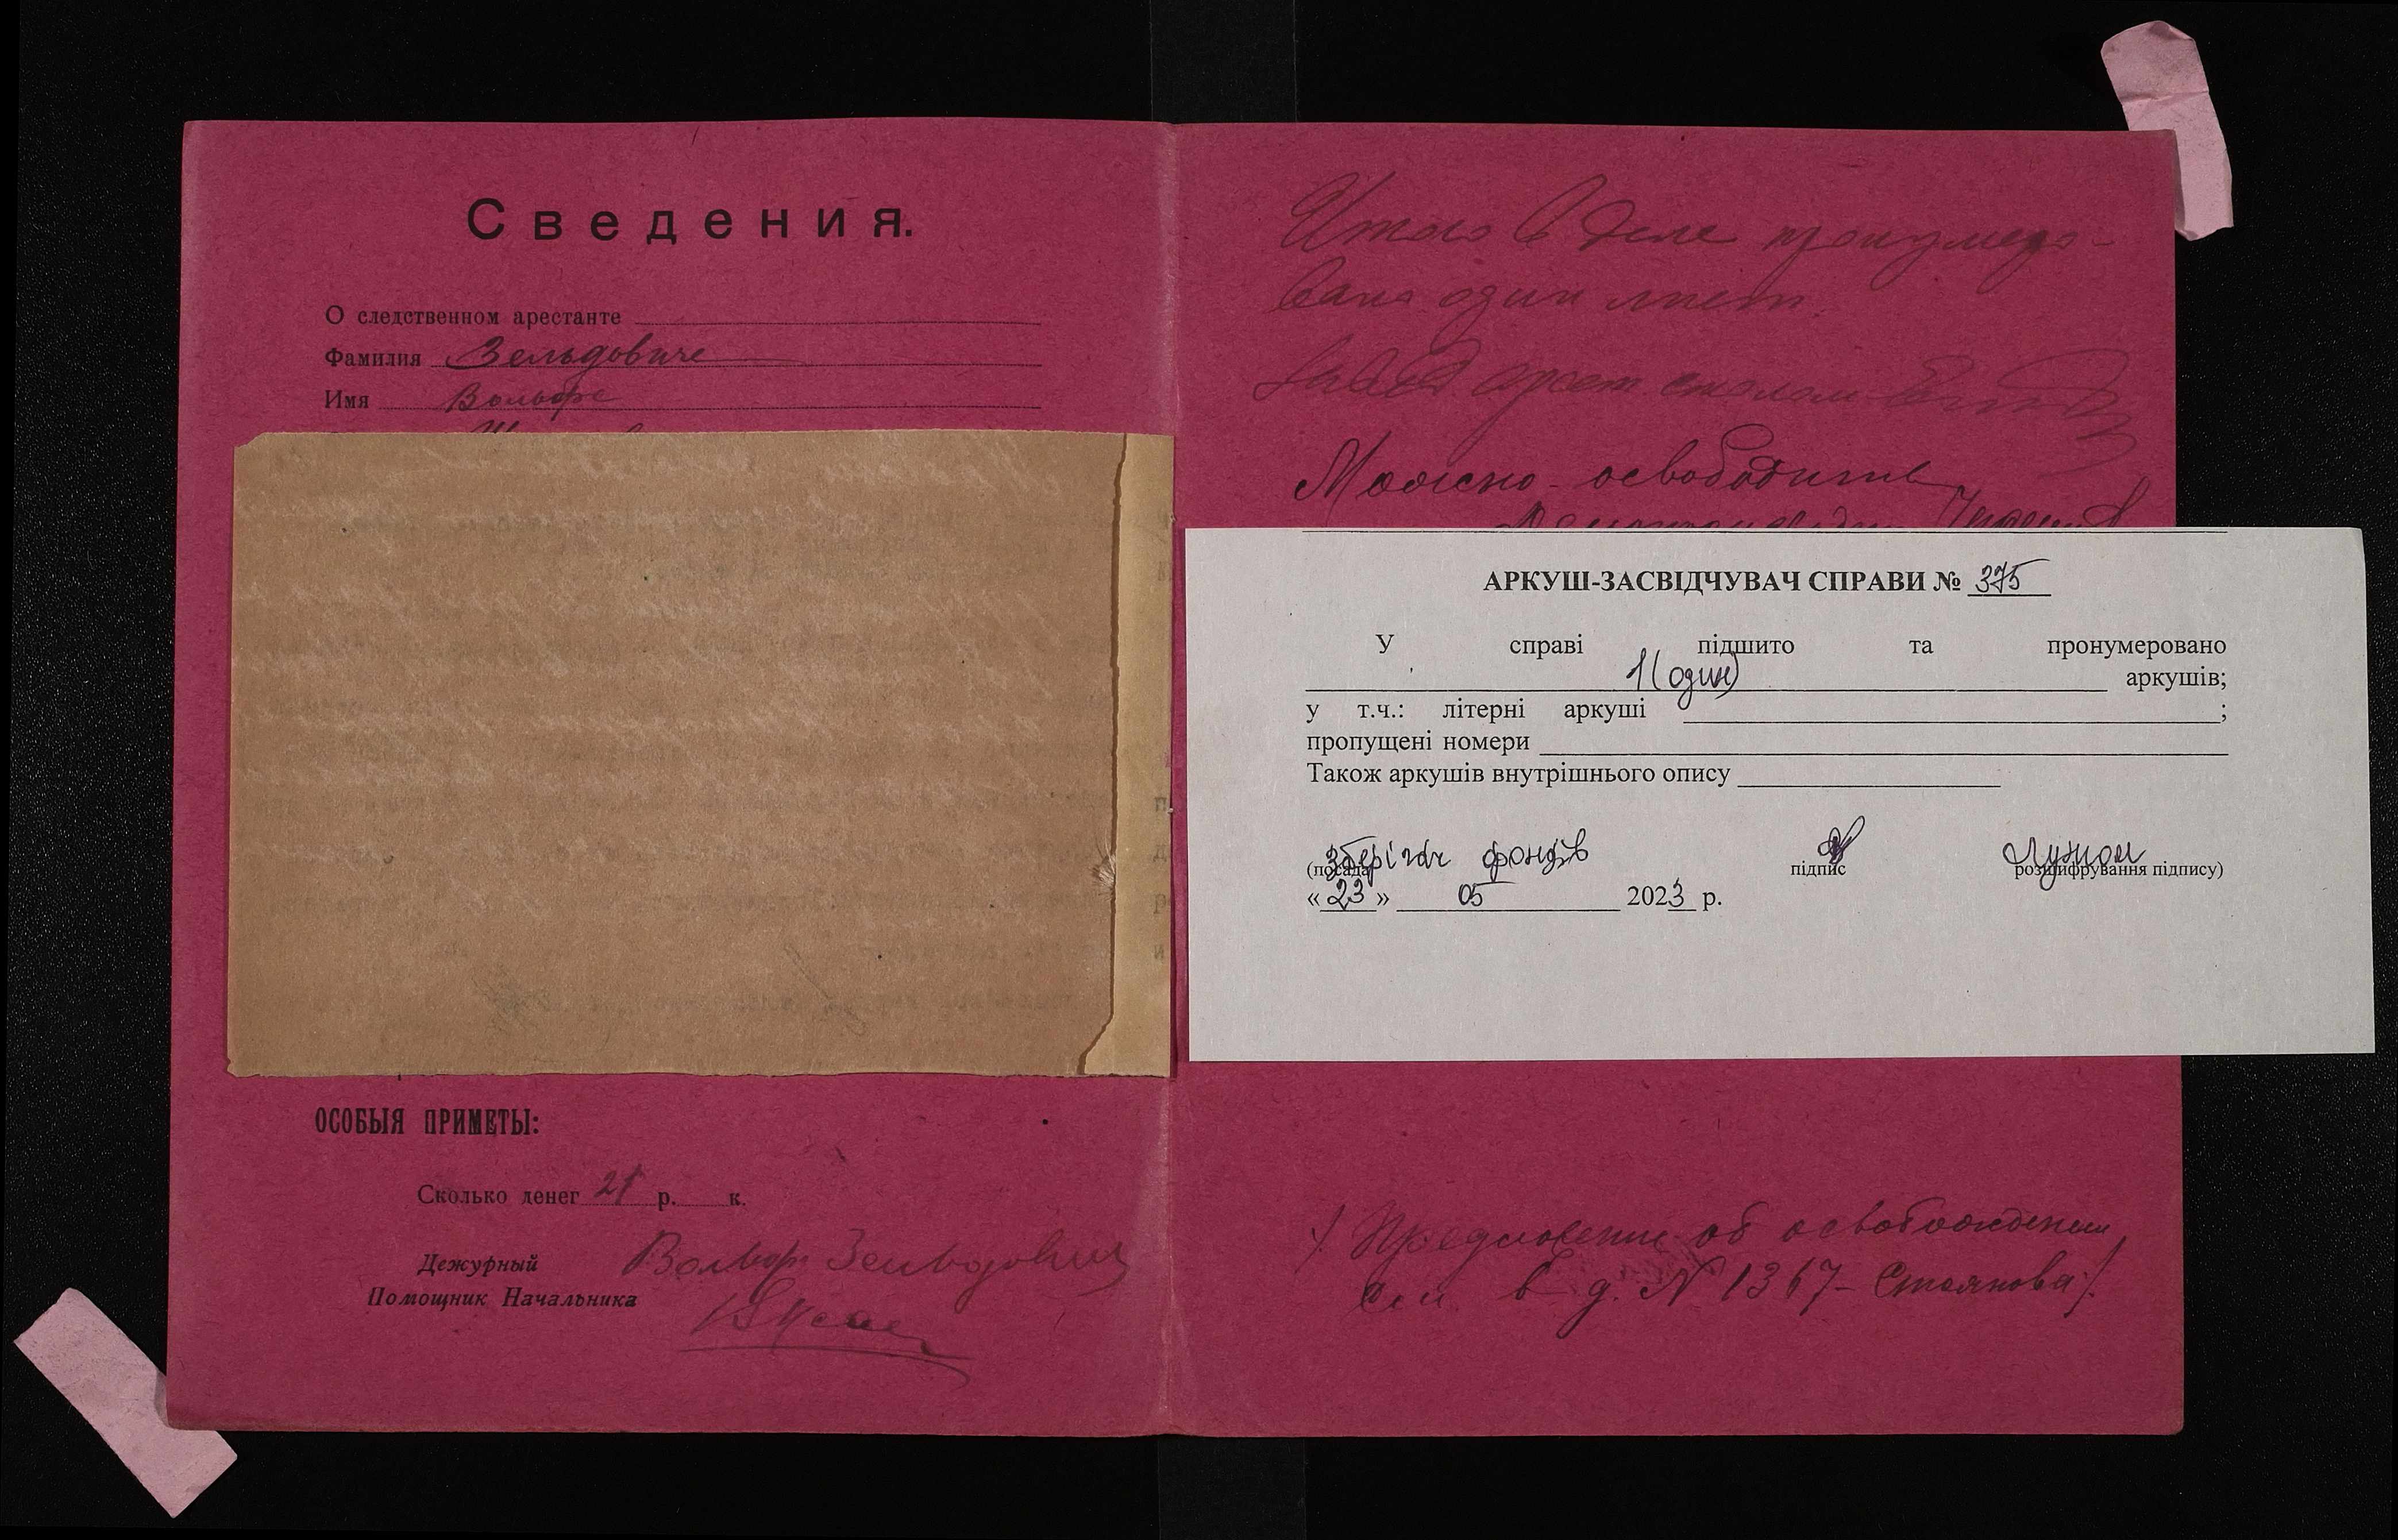 Сведения.
О следственном арестанте
Фамилия Зельдовиче
Имя Вольфе
ОСОБЫЯ ПРИМЕТЫ:
Сколько денег 21 р. к.
Дежурный
Помощник Начальника
Вольф Зельдович
Итого в деле пронумеро-
вано один лист.
арест. столом
Можно освободить
АРКУШ-ЗАСВІДЧУВАЧ СПРАВИ № 375
У справі підшито та пронумеровано
1 (один) аркушів;
у т.ч.: літерні аркуші ;
пропущені номери
Також аркушів внутрішнього опису
зберігач фондів
(посада) підпис розшифрування підпису)
« 23 » 05 2023 р.
/. Предложение об освобождении
в д. № 1367 – Стоянова /.